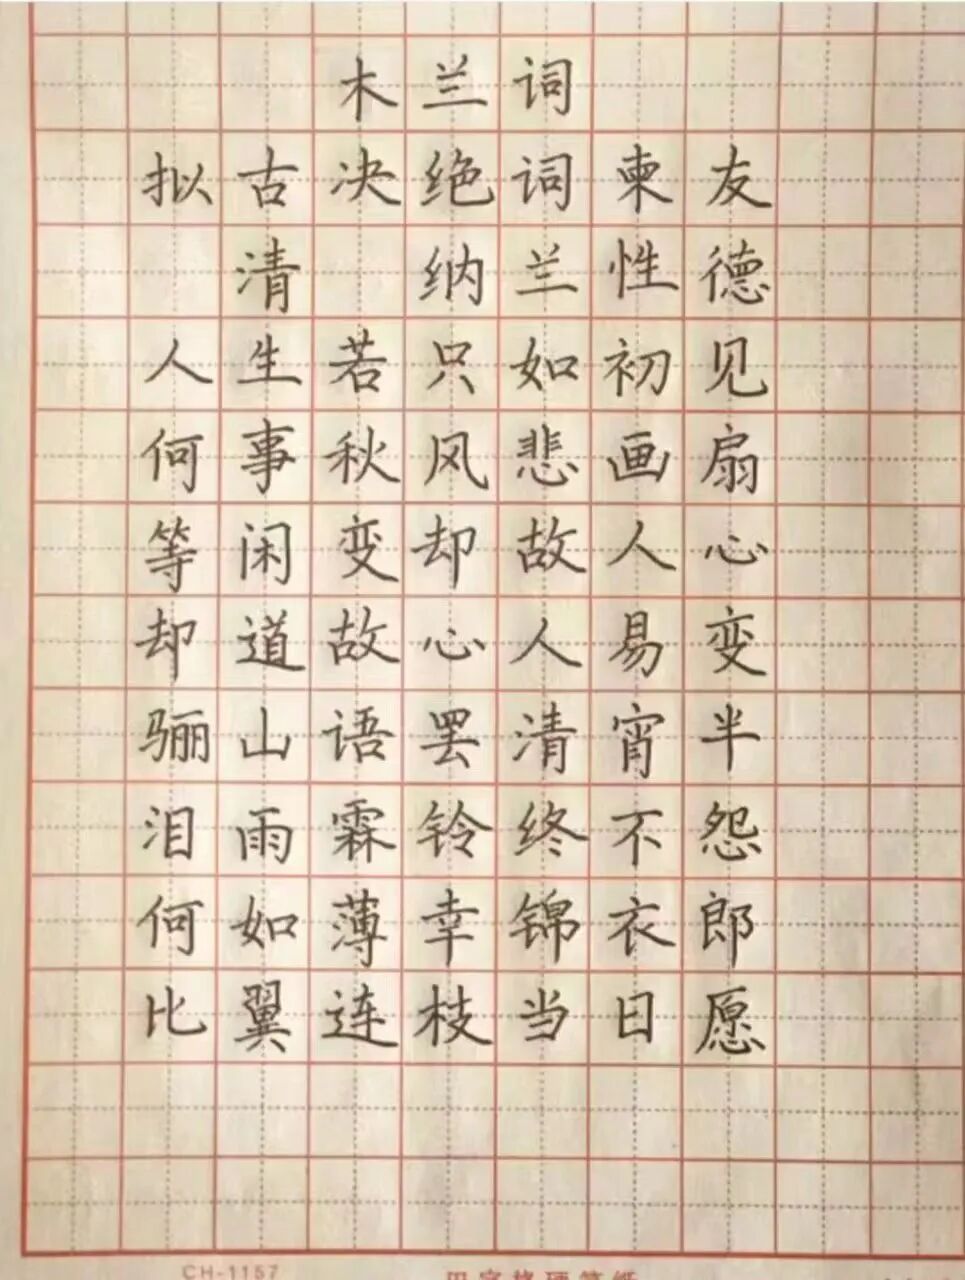 木兰词
拟古决绝词柬友
清 纳兰性德
人生若只如初见
何事秋风悲画扇
等闲变却故人心
却道故心人易变
骊山语罢清宵半
泪雨霖铃终不怨
何如薄幸锦衣郎
比翼连枝当日愿
CH-1157
田字格硬笔纸